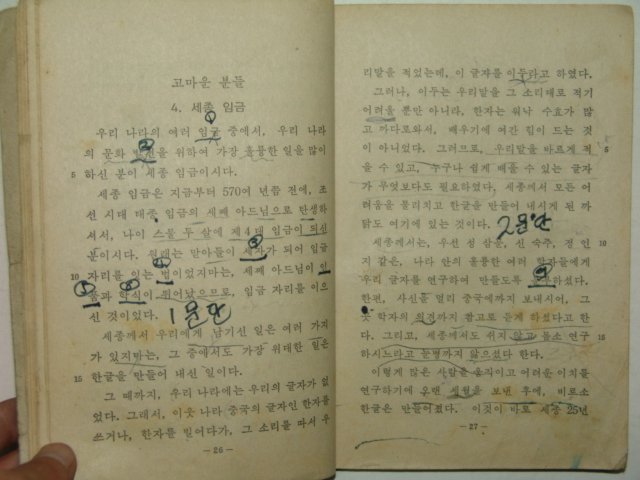 고마운 분들
4. 세종 임금
우리 나라의 여러 임금 중에서, 우리 나라
의 문화 발전을 위하여 가장 훌륭한 일을 많이
5 하신 분이 세종 임금이시다.
세종 임금은 지금부터 570여 년쯤 전에, 조
선 시대 태종 임금의 세째 아드님으로 탄생하
셔서, 나이 스물 두 살에 제 4 대 임금이 되신
분이시다. 원래는 맏아들이 세자가 되어 임금
10 자리를 잇는 법이었지마는, 세째 아드님이 인
품과 학식이 뛰어났으므로, 임금 자리를 이으
신 것이었다. 1문단
세종께서 우리에게 남기신 일은 여러 가지
가 있지마는, 그 중에서도 가장 위대한 일은
15 한글을 만들어 내신 일이다.
그 때까지, 우리 나라에는 우리의 글자가 없
었다. 그래서, 이웃 나라 중국의 글자인 한자를
쓰거나, 한자를 빌어다가, 그 소리를 따서 우
— 26 —
리말을 적었는데, 이 글자를 이두라고 하였다.
그러나, 이두는 우리말을 그 소리대로 적기
어려울 뿐만 아니라, 한자는 워낙 수효가 많
고 까다로와서, 배우기에 여간 힘이 드는 것
이 아니었다. 그러므로, 우리말을 바르게 적 5
을 수 있고, 누구나 쉽게 배울 수 있는 글자
가 무엇보다도 필요하였다. 세종께서 모든 어
려움을 물리치고 한글을 만들어 내시게 된 까
닭도 여기에 있는 것이다. 2문단
세종께서는, 우선 성 삼문, 신 숙주, 정 인 10
지 같은, 나라 안의 훌륭한 여러 학자들에게
우리 글자를 연구하여 만들도록 하셨다.
한편, 사신을 멀리 중국에까지 보내시어, 그
곳 학자의 의견까지 참고로 듣게 하셨다고 한
다. 그리고, 세종께서도 쉬지 않고 몸소 연구 15
하시느라고 눈병까지 앓으셨다 한다.
이렇게 많은 사람을 움직이고 어려운 이치를
연구하기에 오랜 세월을 보낸 후에, 비로소
한글은 만들어졌다. 이것이 바로 세종 25년
— 27 —